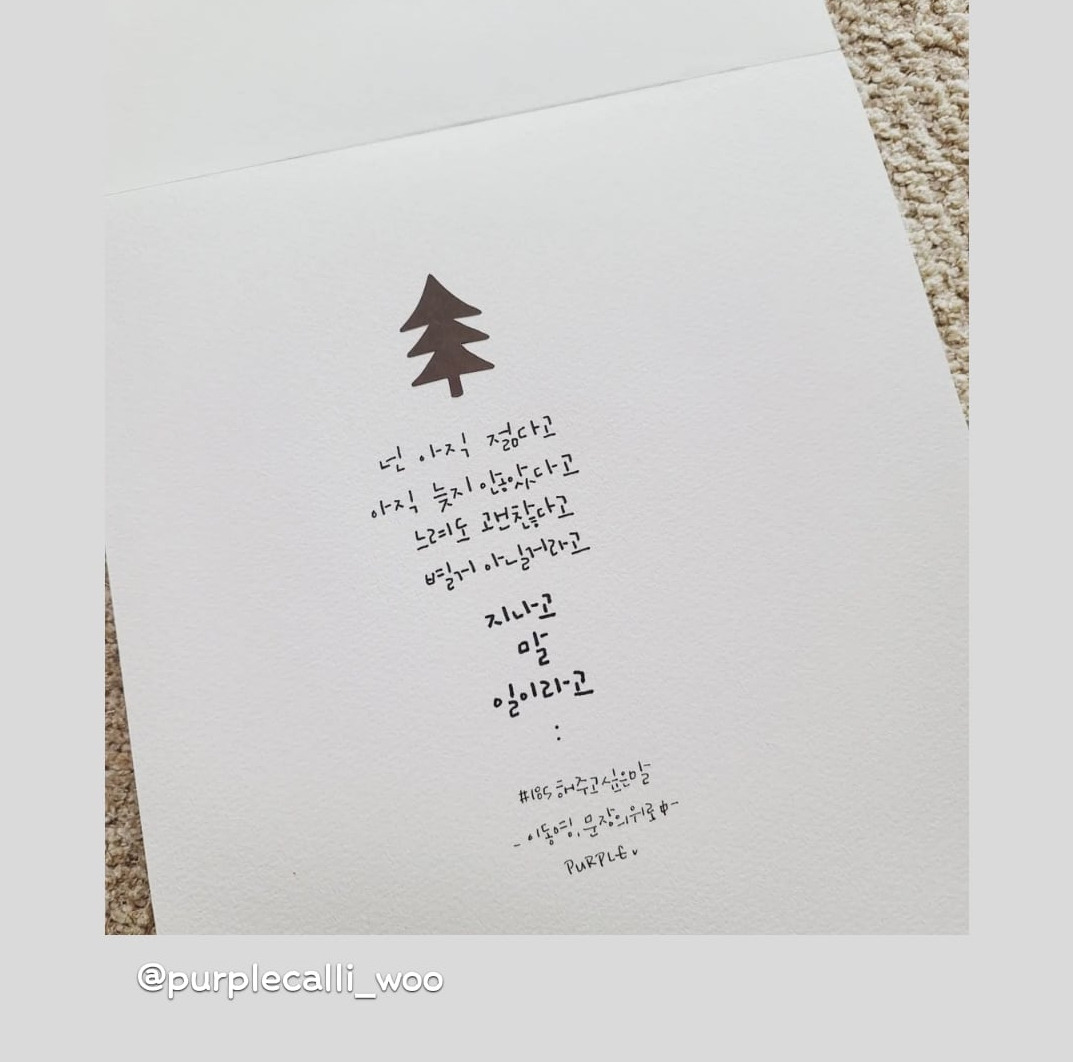 넌 아직 젊다고
아직 늦지 않았다고
느려도 괜찮다고
별거 아닐거라고
지나고
말
일이라고
:
#185 해주고싶은말
- 이동영, 문장의위로 中 -
PURPLE
@purplecalli_woo